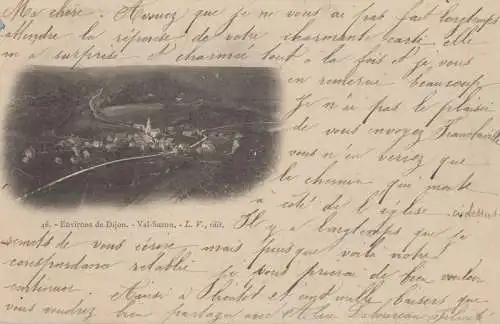 Ma chère. Avouez que je ne vous ai pas fait longtemps
attendre la réponse de votre charmante carte elle
m'a surprise et charmée tout à la fois et je vous
en remercie beaucoup.
Je n'ai pas le plaisir
de vous envoyer
n'en verrez que
le chemin qui monte
à côté de l'église ci dessus
46. - Environs de Dijon. - Val-Suzon. - L. V., édit.
Il y a longtemps que je
de vous écrire, mais puisque voilà notre
correspondance rétablie je vous prierai de bien vouloir
continuer. et cent mille baisers que
vous voudrez bien partager avec